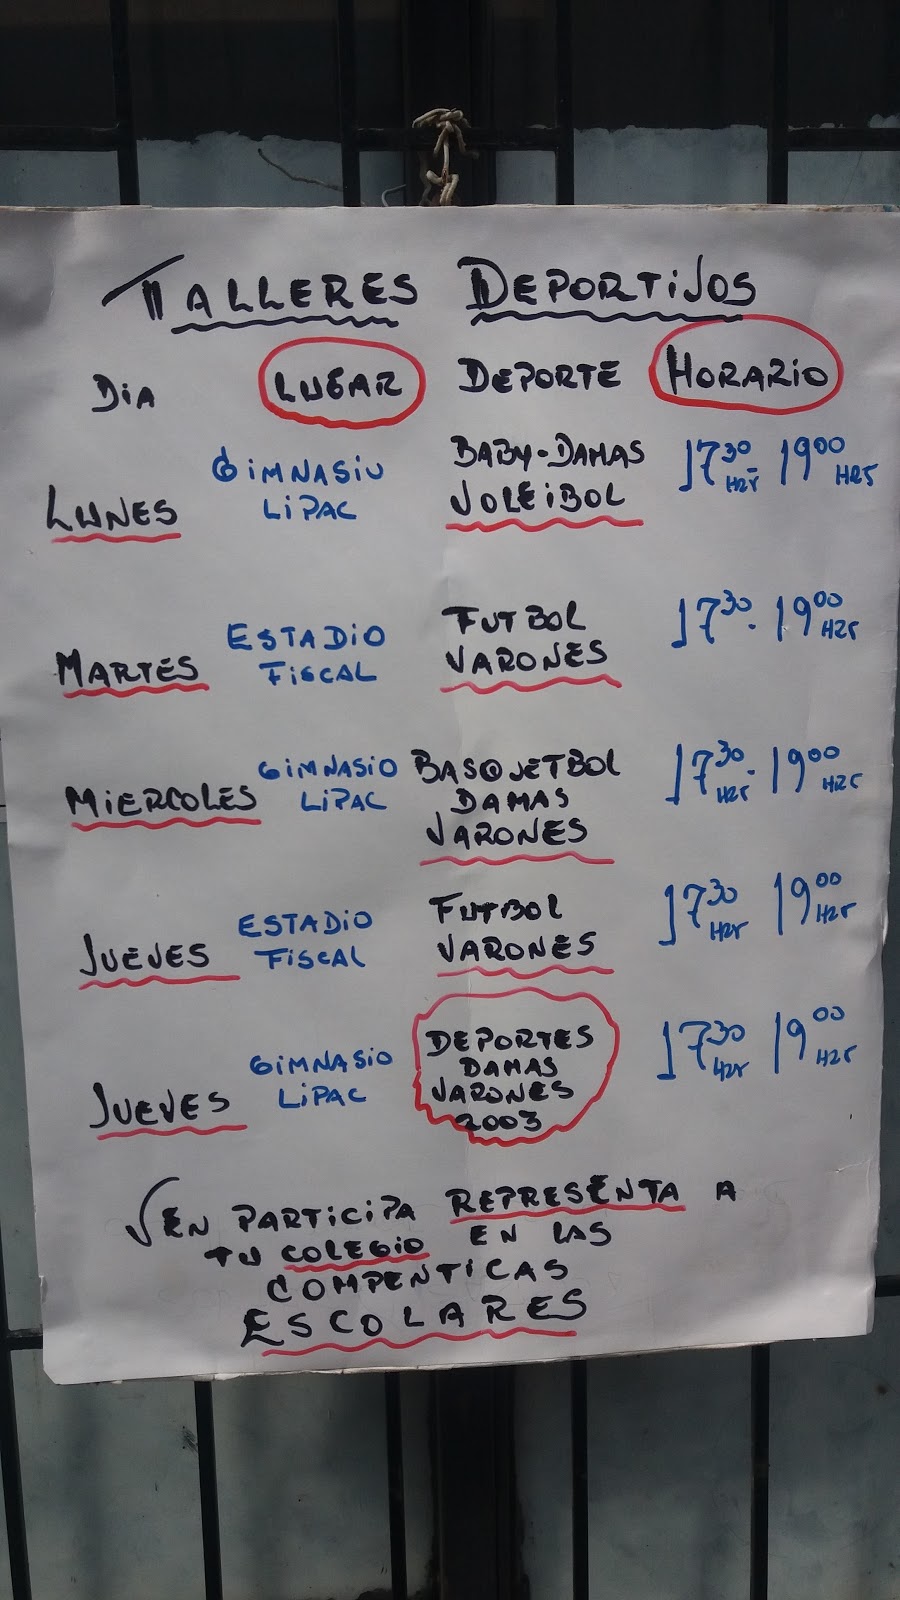 TALLERES DEPORTIVOS
DIA LUGAR DEPORTE HORARIO
LUNES GIMNASIO LIPAC BABY-DAMAS VOLEIBOL 17 30 HRS - 19 00 HRS
MARTES ESTADIO FISCAL FUTBOL VARONES 17 30 - 19 00 HRS
MIERCOLES GIMNASIO LIPAC BASQUETBOL DAMAS VARONES 17 30 HRS - 19 00 HRS
JUEVES ESTADIO FISCAL FUTBOL VARONES 17 30 HRS 19 00 HRS
JUEVES GIMNASIO LIPAC DEPORTES DAMAS VARONES 2003 17 30 HRS 19 00 HRS
VEN PARTICIPA REPRESENTA A
TU COLEGIO EN LAS
COMPENTICAS
ESCOLARES